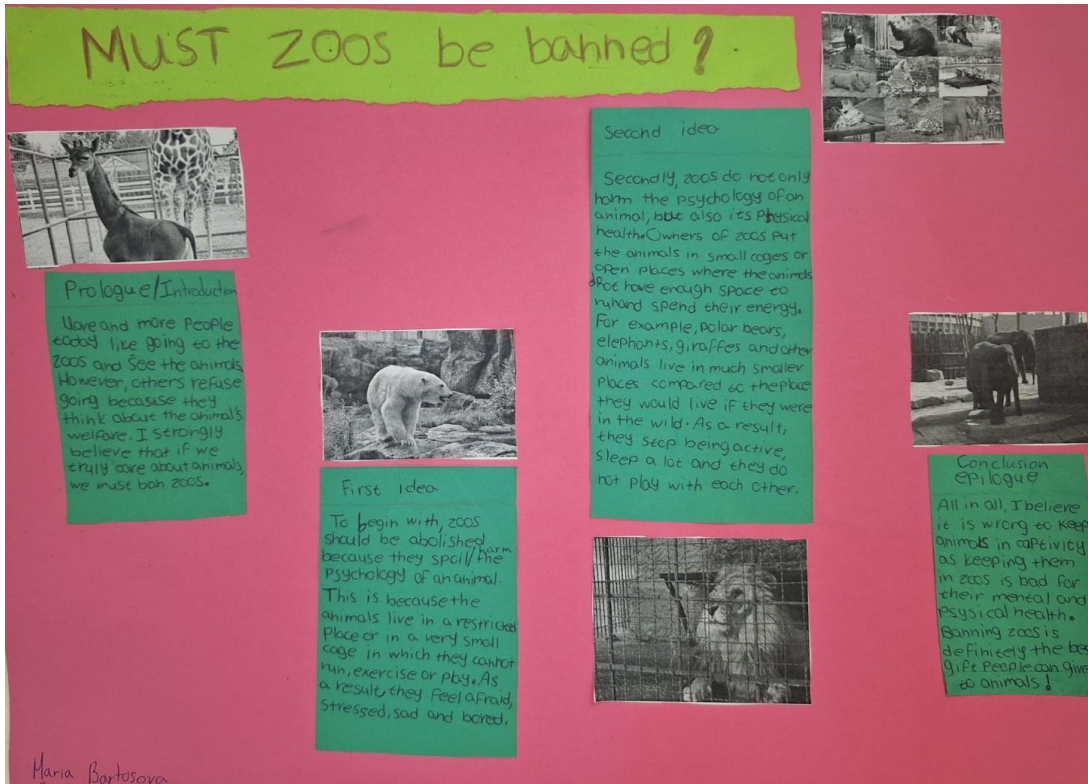 MUST ZOOS be banned?
Prologue/Introduction
More and more people
today like going to the
zoos and see the animals.
However, others refuse
going becasuse they
think about the animal's
welfare. I strongly
believe that if we
truly care about animals,
we must ban zoos.
First idea
To begin with, zoos
should be abolished
because they spoil/harm the
psychology of an animal.
This is because the
animals live in a restricted
place or in a very small
cage in which they cannot
run, exercise or play. As
a result, they feel afraid,
stressed, sad and bored.
Second idea
Secondly, zoos do not only
harm the psychology of an
animal, but also its physical
health. Owners of zoos put
the animals in small cages or
open places where the animals
do not have enough space to
run and spend their energy.
For example, polar bears,
elephants, giraffes and other
animals live in much smaller
places compared to the place
they would live if they were
in the wild. As a result,
they stop being active,
sleep a lot and they do
not play with each other.
Conclusion
epilogue
All in all, I believe
it is wrong to keep
animals in captivity
as keeping them
in zoos is bad for
their mental and
psysical health.
Banning zoos is
definitely the bes
gift people can give
to animals!
Maria Bartosova